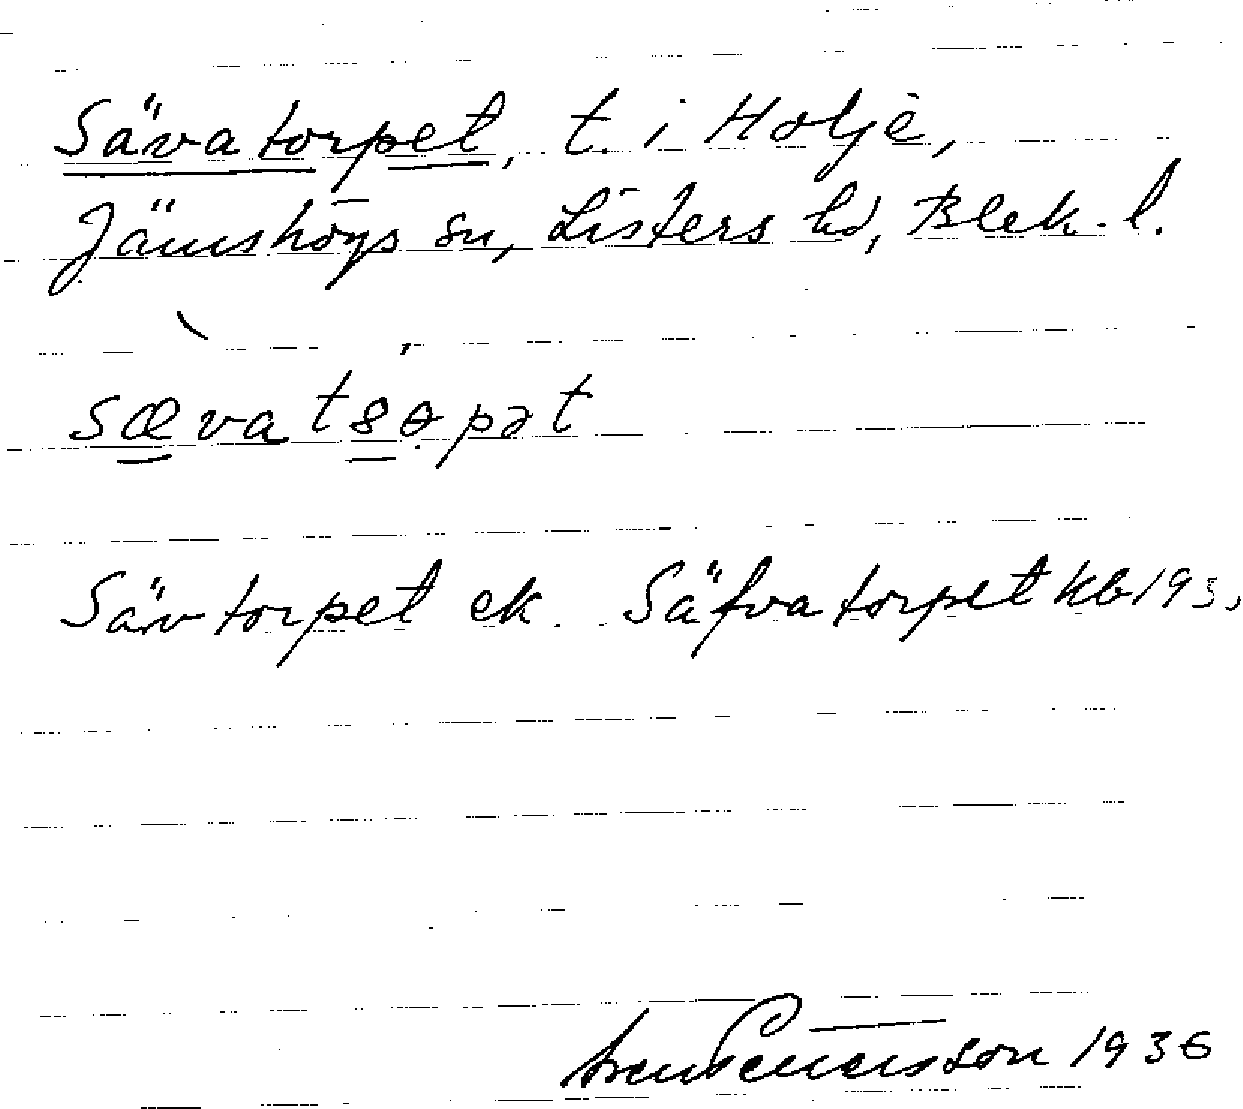 Sävatorpet, t. i Holje,
Jämshögs sn, Listers hd, Blek. l.
sævatsəpət
Sävtorpet ek. Säfvatorpet kb 193
1936